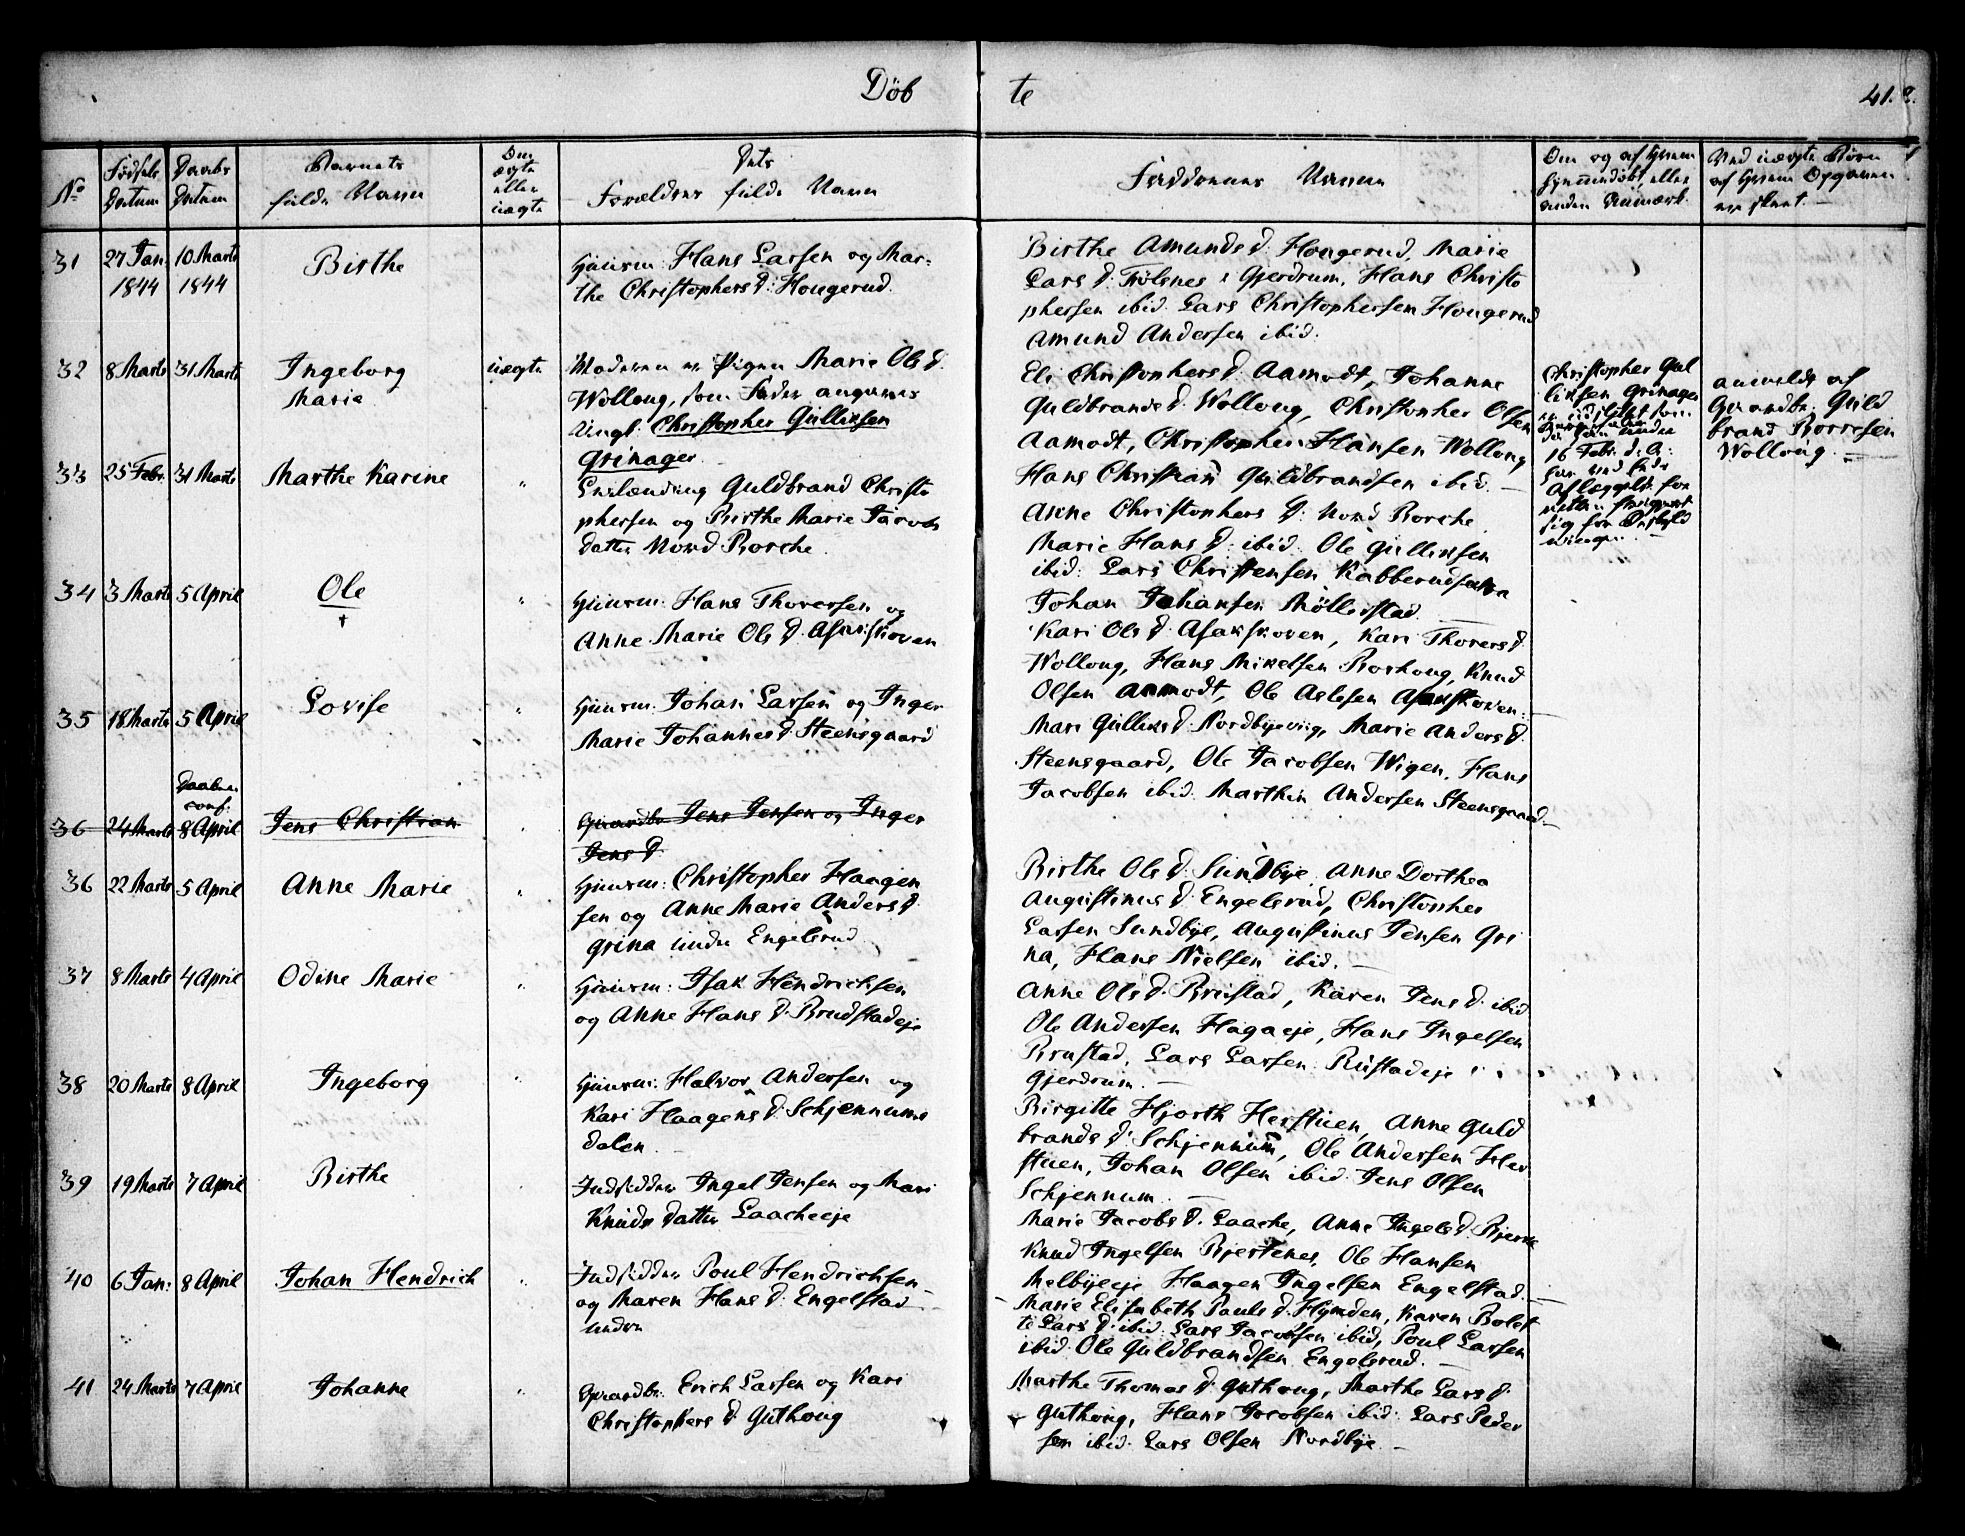 Døb te 41.
No
Fødsels Datum
Daabs Datum
Barnets fulde Navn
Om ægte eller uægte
Dets Forældres fulde Navn
Faddernes Navne
Om og af hvem hjemmedøbt, eller anden Anmærk.
Ved uægte Børn af hvem Opgaven er skeet.
31 27 Jan. 1844 10 Marts 1844 Birthe
Huusm: Hans Larsen og Mar=
the Christophersd: Hougerud.
Birthe Amundsd. Hougerud, Marie
Larsd. Frølsnes i Gjerdrum, Hans Christo
phersen ibid. Lars Christophersen Hougerud
Amund Andersen ibid.
32 8 Marts 31 Marts Ingeborg
Marie
uægte
Moderen er Pigen Marie Olsd.
Wolloug, som Fader angives
Ungk. Christopher Gulliksen
Grinager
Eli Christophersd. Aamodt, Johanne
Guldbrandsd. Wolloug, Christopher Olsen
Aamodt, Christopher Hansen Wolloug
Hans Christian Guldbrandsen ibid.
Christopher Gul
liksen Grinager
er udlagt som
Barnefader
16 Febr. d. A.
har ved Eed
aflagt for
sig for
anmeldt af
Gaardbr. Guld
brand Borresen
Wolloug.
33 25 Febr. 31 Marts Marthe Karine "
Enrolering Guldbrand Christo
phersen og Birthe Marie Jacobs
datter Nord Borche.
Anne Christophersd: Nord Borche
Marie Hansd. ibid. Ole Gulliksen
ibid: Lars Christensen Kabberudsaa
Johan Johansen Møllerstad.
34 3 Marts 5 April Ole "
†
Huusm: Hans Thoresen og
Anne Marie Olsd. Asakskoven
Kari Olsd. Asakskoven, Kari Thoresd.
Wolloug, Hans Mikelsen Borhoug, Knud
Olsen Aamodt, Ole Aslesen Asakskoven.
35 18 Marts 5 April Lovise "
Huusm: Johan Larsen og Inger
Marie Johannesd: Steensgaard
Mari Gulliksd. Nordbyeviig, Marie Andersd.
Steensgaard, Ole Jacobsen Wigen, Hans
Jacobsen ibid. Marthin Andersen Steensgaard.
Daaben
conf.
36 24 Marts 8 April Jens Christian "
Gaardbr. Jens Jensen og Inger
Jensd.
36 22 Marts 5 April Anne Marie "
Huusm: Christopher Haagen
sen og Anne Marie Andersd.
Grina under Engelsrud.
Birthe Olsd. Sundbye, Anne Dorthea
Augustinusd. Engelsrud, Christopher
Larsen Sundbye, Augustinus Jensen Gri
na, Hans Nielsen ibid.
37 8 Marts 4 April Odine Marie "
Huusm: Isak Hendrichsen
og Anne Hansd. Brudstadeje
Anne Olsd. Brustad, Karen Jensd. ibid
Ole Andersen Hagaeje, Hans Ingelsen
Brustad, Lars Larsen Rustadeje i
Gjerdrum.
38 20 Marts 8 April Ingeborg "
Huusm: Halvor Andersen og
Kari Haagensd. Schjennums
dalen.
Birgitte Hjorth Herstuen, Anne Guld
brandsd. Schjennum, Ole Andersen Her
stuen, Johan Olsen ibid. Jens Olsen
Schjennum.
39 19 Marts 7 April Birthe
Indsidder Ingel Jensen og Mari
Knudsdatter Laacheeje
Marie Jacobsd. Laache, Anne Ingelsd. Bjerke
Knud Ingelsen Bjertenes, Ole Hansen
Melbyeeje Haagen Ingelsen Engelstad.
40 6 Jan: 8 April Johan Hendrich "
Indsidder Poul Hendrichsen
og Maren Hansd. Engelstad
under
Marie Elisabeth Paulsd. Hymden, Karen Bolet
te Larsd. ibid: Lars Jacobsen ibid, Poul Larsen
ibid. Ole Guldbrandsen Engelsrud.
41 24 Marts 7 April Johanne "
Gaardbr. Erich Larsen og Kari
Christophersd. Guthoug
Marthe Thomasd. Guthoug, Marthe Larsd.
Guthoug, Hans Jacobsen ibid. Lars Peder
sen ibid. Lars Olsen Nordbye.